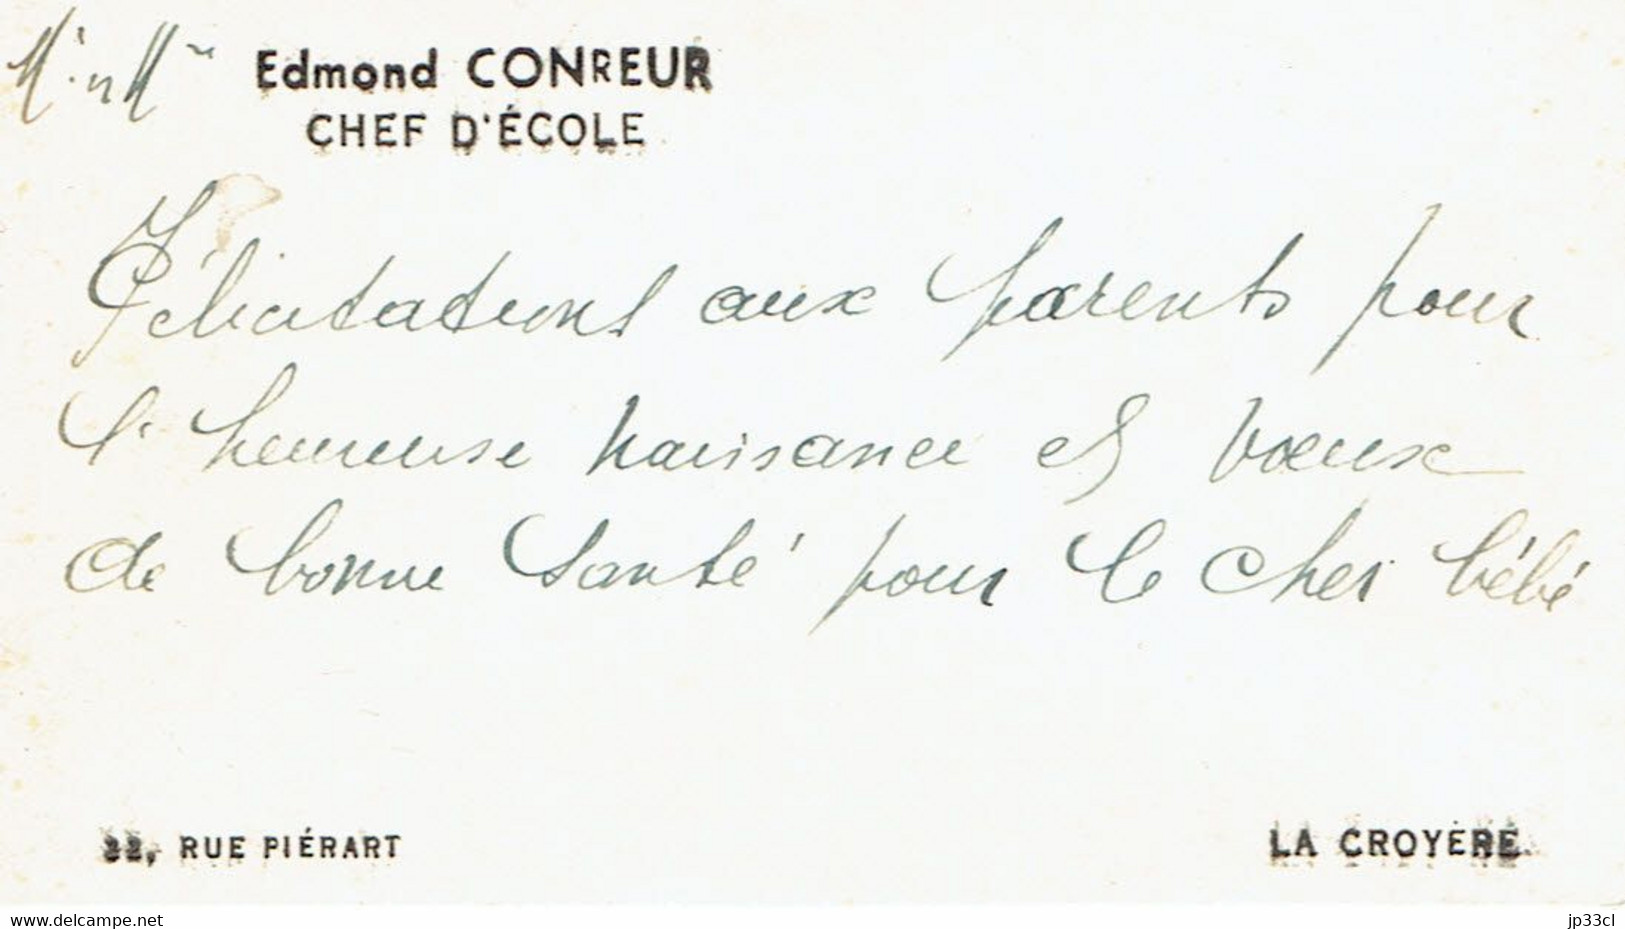 Mr et Mme Edmond CONREUR
CHEF D'ÉCOLE
Félicitations aux parents pour
l'heureuse naissance et voeux
de bonne santé pour le cher bébé
22, RUE PIÉRART
LA CROYÈRE
www.delcampe.net
jp33cl